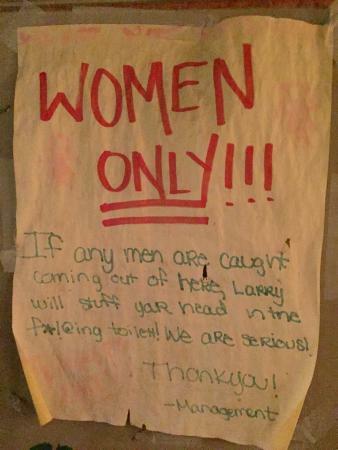 WOMEN
ONLY!!!
If any men are caught
coming out of here, Larry
will stuff your head in the
f*!@ing toilet! We are serious!
Thankyou!
-Management